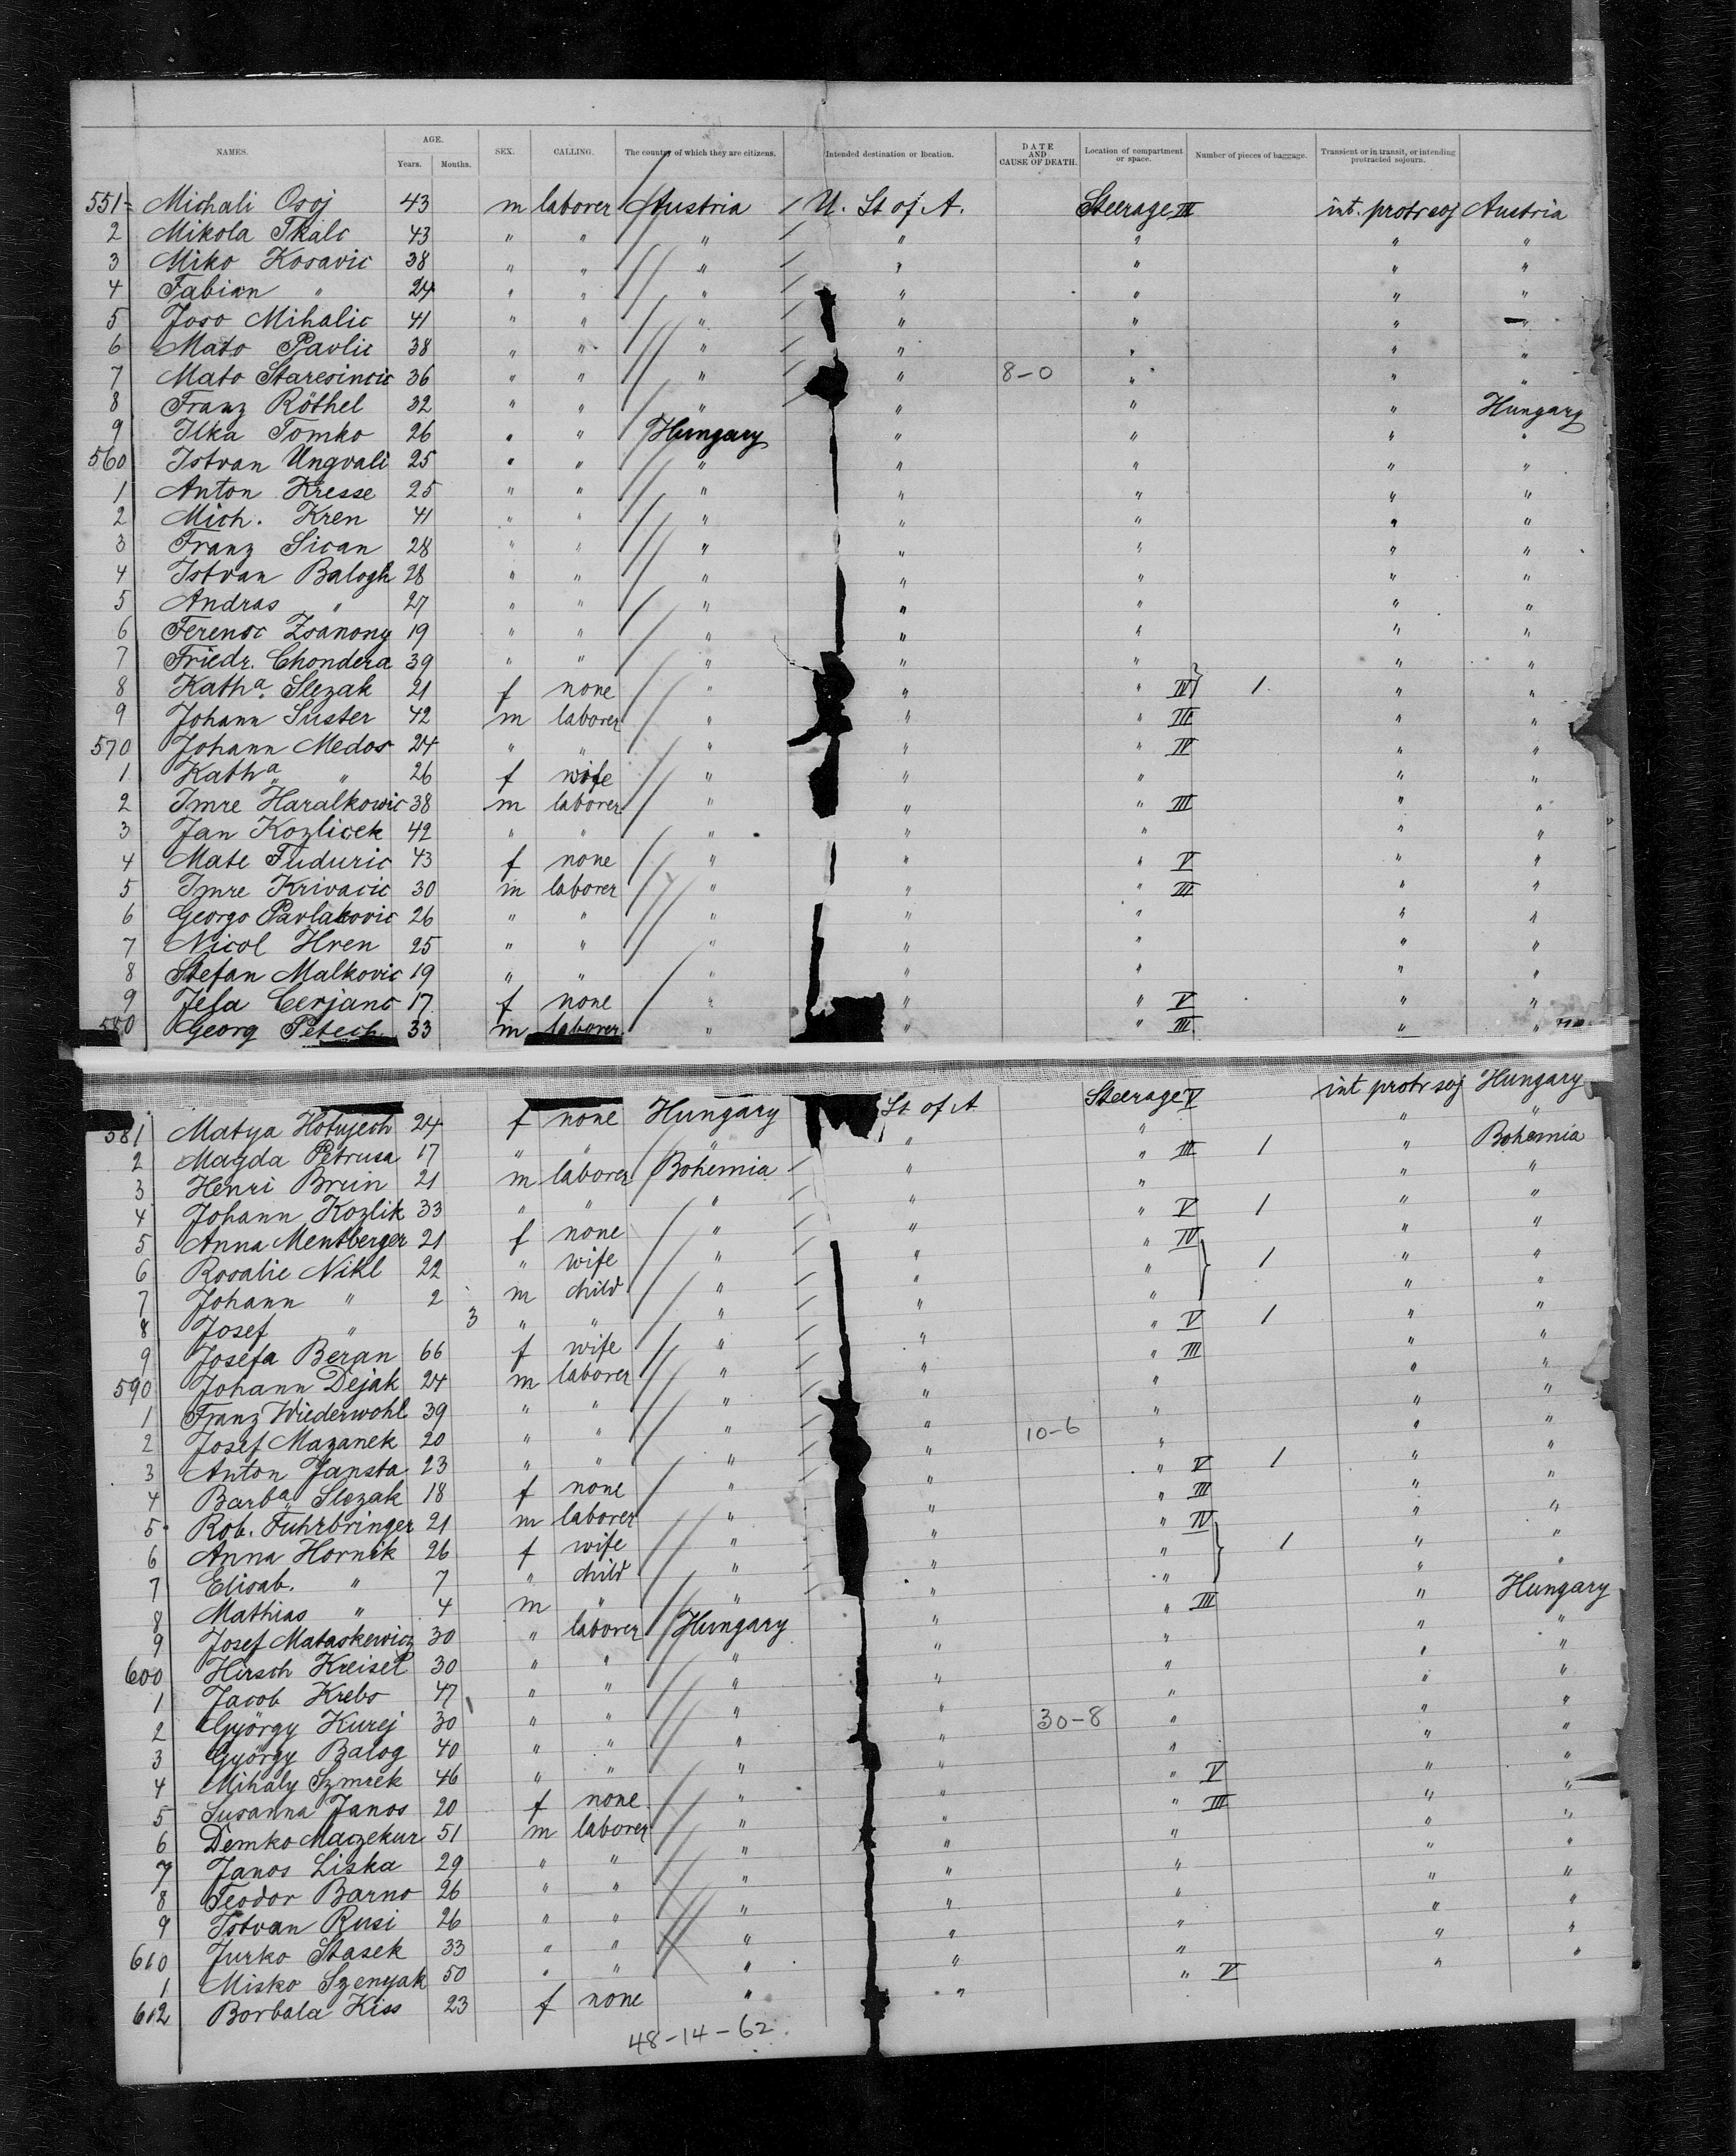 NAMES. AGE. Years. Months. SEX. CALLING. The country of which they are citizens. Intended destination or location. DATE AND CAUSE OF DEATH. Location of compartment or space. Number of pieces of baggage. Transient or in transit, or intending protracted sojourn.
551 Michali Osoj 43 m laborer Austria U. St of A. Steerage III int. protr soj Austria
2 Mikola Tkalc 43 " " " " " " "
3 Miko Kosavic 38 " " " " " " "
4 Fabian " 24 " " " " " " "
5 Joso Mihalic 41 " " " " " " "
6 Mato Pavlic 38 " " " " " " "
7 Mato Staresincic 36 " " " " 8-0 " " "
8 Franz Röthel 32 " " " " " " Hungary
9 Ilka Tomko 26 " " Hungary " " " "
560 Istvan Ungvali 25 " " " " " " "
1 Anton Kresse 25 " " " " " " "
2 Mich. Kren 41 " " " " " " "
3 Franz Sican 28 " " " " " " "
4 Istvan Balogh 28 " " " " " " "
5 Andras " 27 " " " " " " "
6 Ferensc Zsanony 19 " " " " " " "
7 Friedr. Chondera 39 " " " " " " "
8 Katha. Slezak 21 f none " " " IV } 1 " "
9 Johann Suster 42 m laborer " " " III " "
570 Johann Medos 24 " " " " " IV " "
1 Katha " 26 f wife " " " " "
2 Imre Haralkowic 38 m laborer " " " III " "
3 Jan Kozlicek 42 " " " " " " "
4 Mate Fuduric 43 f none " " " V " "
5 Imre Krivacic 30 m laborer " " " III " "
6 Georgo Pavlakovic 26 " " " " " " "
7 Nicol Hren 25 " " " " " " "
8 Stefan Malkovic 19 " " " " " " "
9 Jela Cerjanc 17 f none " " " V " "
580 Georg Petech 33 m laborer " " " III " "
581 Matya Hotujech 24 f none Hungary St of A Steerage V int protr soj Hungary
2 Magda Petrusa 17 " " " " " " "
3 Henri Brun 21 m laborer Bohemia " " III 1 " Bohemia
4 Johann Kozlik 33 " " " " " " "
5 Anna Mentberger 21 f none " " " V 1 " "
6 Rosalie Nikl 22 " wife " " " IV } 1 " "
7 Johann " 2 m child " " " " "
8 Josef " 3 " " " " " " "
9 Josefa Beran 66 f wife " " " V 1 " "
590 Johann Dejak 24 m laborer " " " III " "
1 Franz Wiederwohl 39 " " " " " " "
2 Josef Mazanek 20 " " " " 10-6 " " "
3 Anton Jansta 23 " " " " " " "
4 Barba Slezak 18 f none " " " V 1 " "
5 Rob. Fuhrbringer 21 m laborer " " " III " "
6 Anna Hornik 26 f wife " " " IV } 1 " "
7 Elisab. " 7 " child " " " " "
8 Mathias " 4 m " " " " " "
9 Josef Mataskewicz 30 " laborer Hungary " " III " Hungary
600 Hirsch Kreisel 30 " " " " " " "
1 Jacob Krebs 47 " " " " " " "
2 György Kurej 30 " " " " 30-8 " " "
3 György Balog 40 " " " " " " "
4 Mihaly Szmrek 46 " " " " " " "
5 Susanna Janos 20 f none " " " V " "
6 Demko Maczekur 51 m laborer " " " III " "
7 Janos Liska 29 " " " " " " "
8 Teodor Barno 26 " " " " " " "
9 Istvan Rusi 26 " " " " " " "
610 Jurko Stasek 33 " " " " " " "
1 Misko Szenyak 50 " " " " " " "
612 Borbala Kiss 23 f none " " " V " "
48-14-62